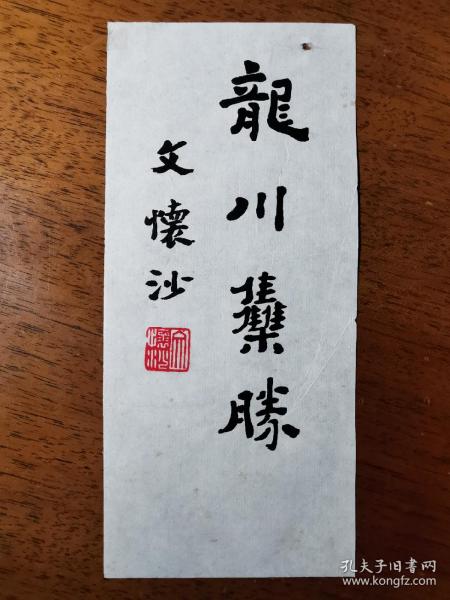 龍川雧勝
文懷沙
文懷沙
孔夫子旧书网
www.kongfz.com